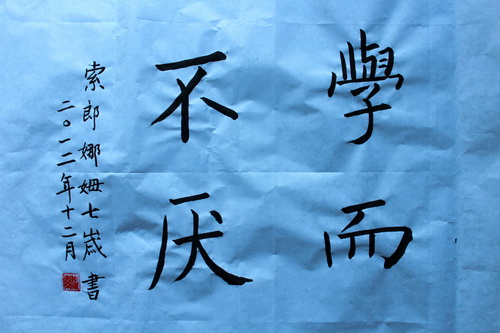 學而
不厌
索郎娜姆七歲書
二〇一二年十二月